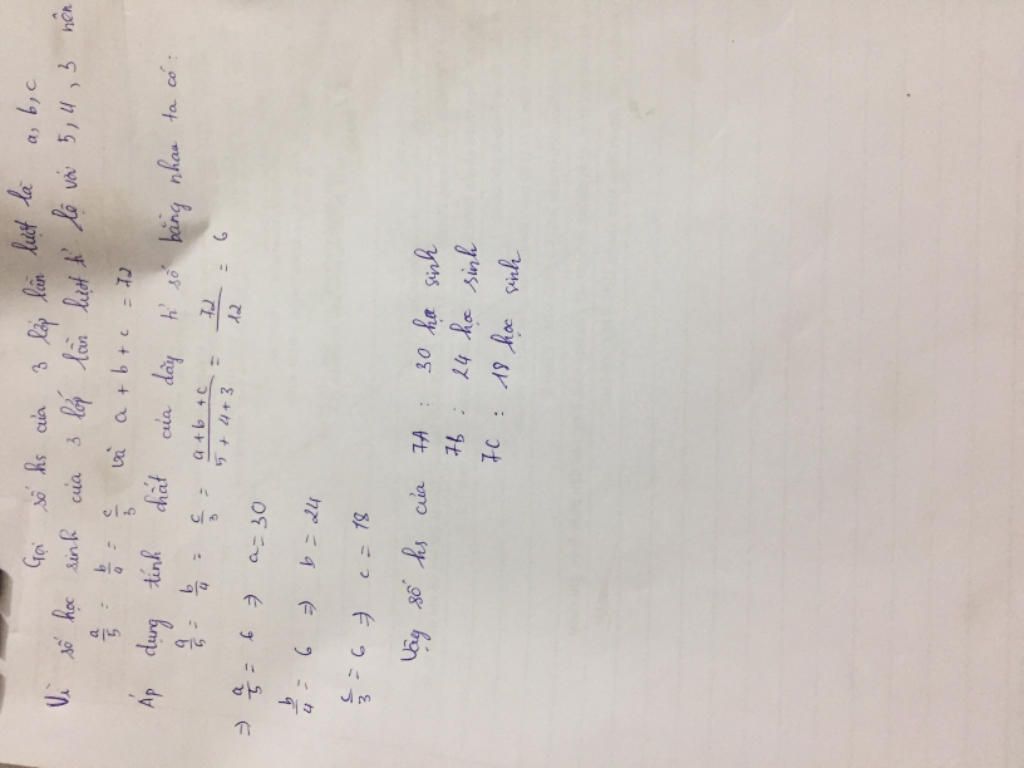 Gọi số hs của 3 lớp lần lượt là a, b, c
Vì số học sinh của 3 lớp lần lượt tỉ lệ với 5, 4, 3 nên
a/5 = b/4 = c/3 và a + b + c = 72
Áp dụng tính chất của dãy tỉ số bằng nhau ta có:
a/5 = b/4 = c/3 = (a+b+c)/(5+4+3) = 72/12 = 6
⇒ a/5 = 6 ⇒ a = 30
b/4 = 6 ⇒ b = 24
c/3 = 6 ⇒ c = 18
Vậy số hs của 7A : 30 học sinh
7b : 24 học sinh
7C : 18 học sinh